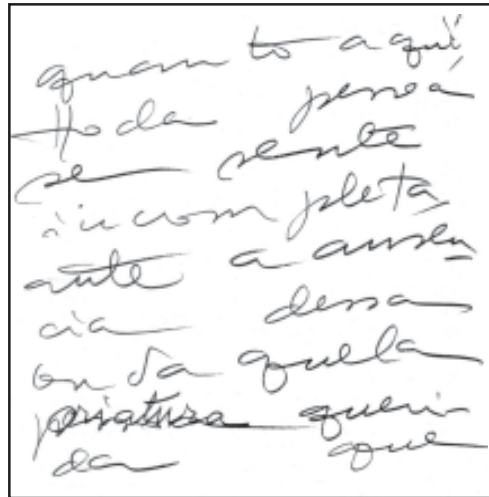 quanto aqui
toda pessoa
se sente
incompleta
ante a ausên
cia dessa
ou daquela
criatura queri
da que